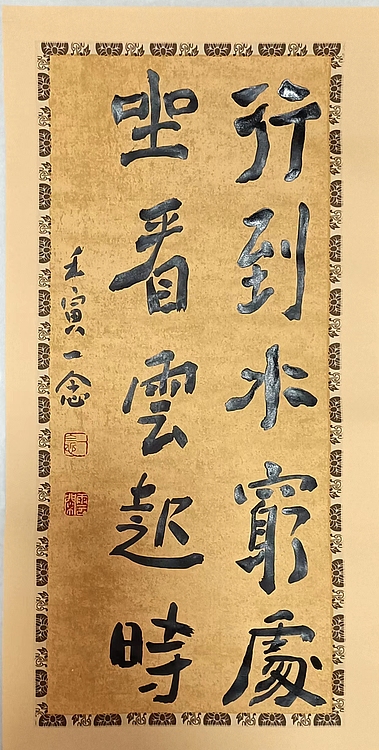 行到水窮處
坐看雲起時
壬寅一念